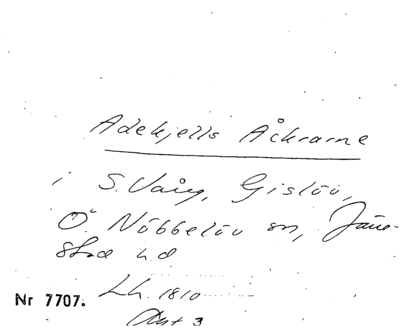 Adekjells Åkrarne
i S. Vång, Gislöv,
Ö. Nöbbelöv sn, Järre-
stad h.d
Nr 7707. Lh. 1810
Akt 3